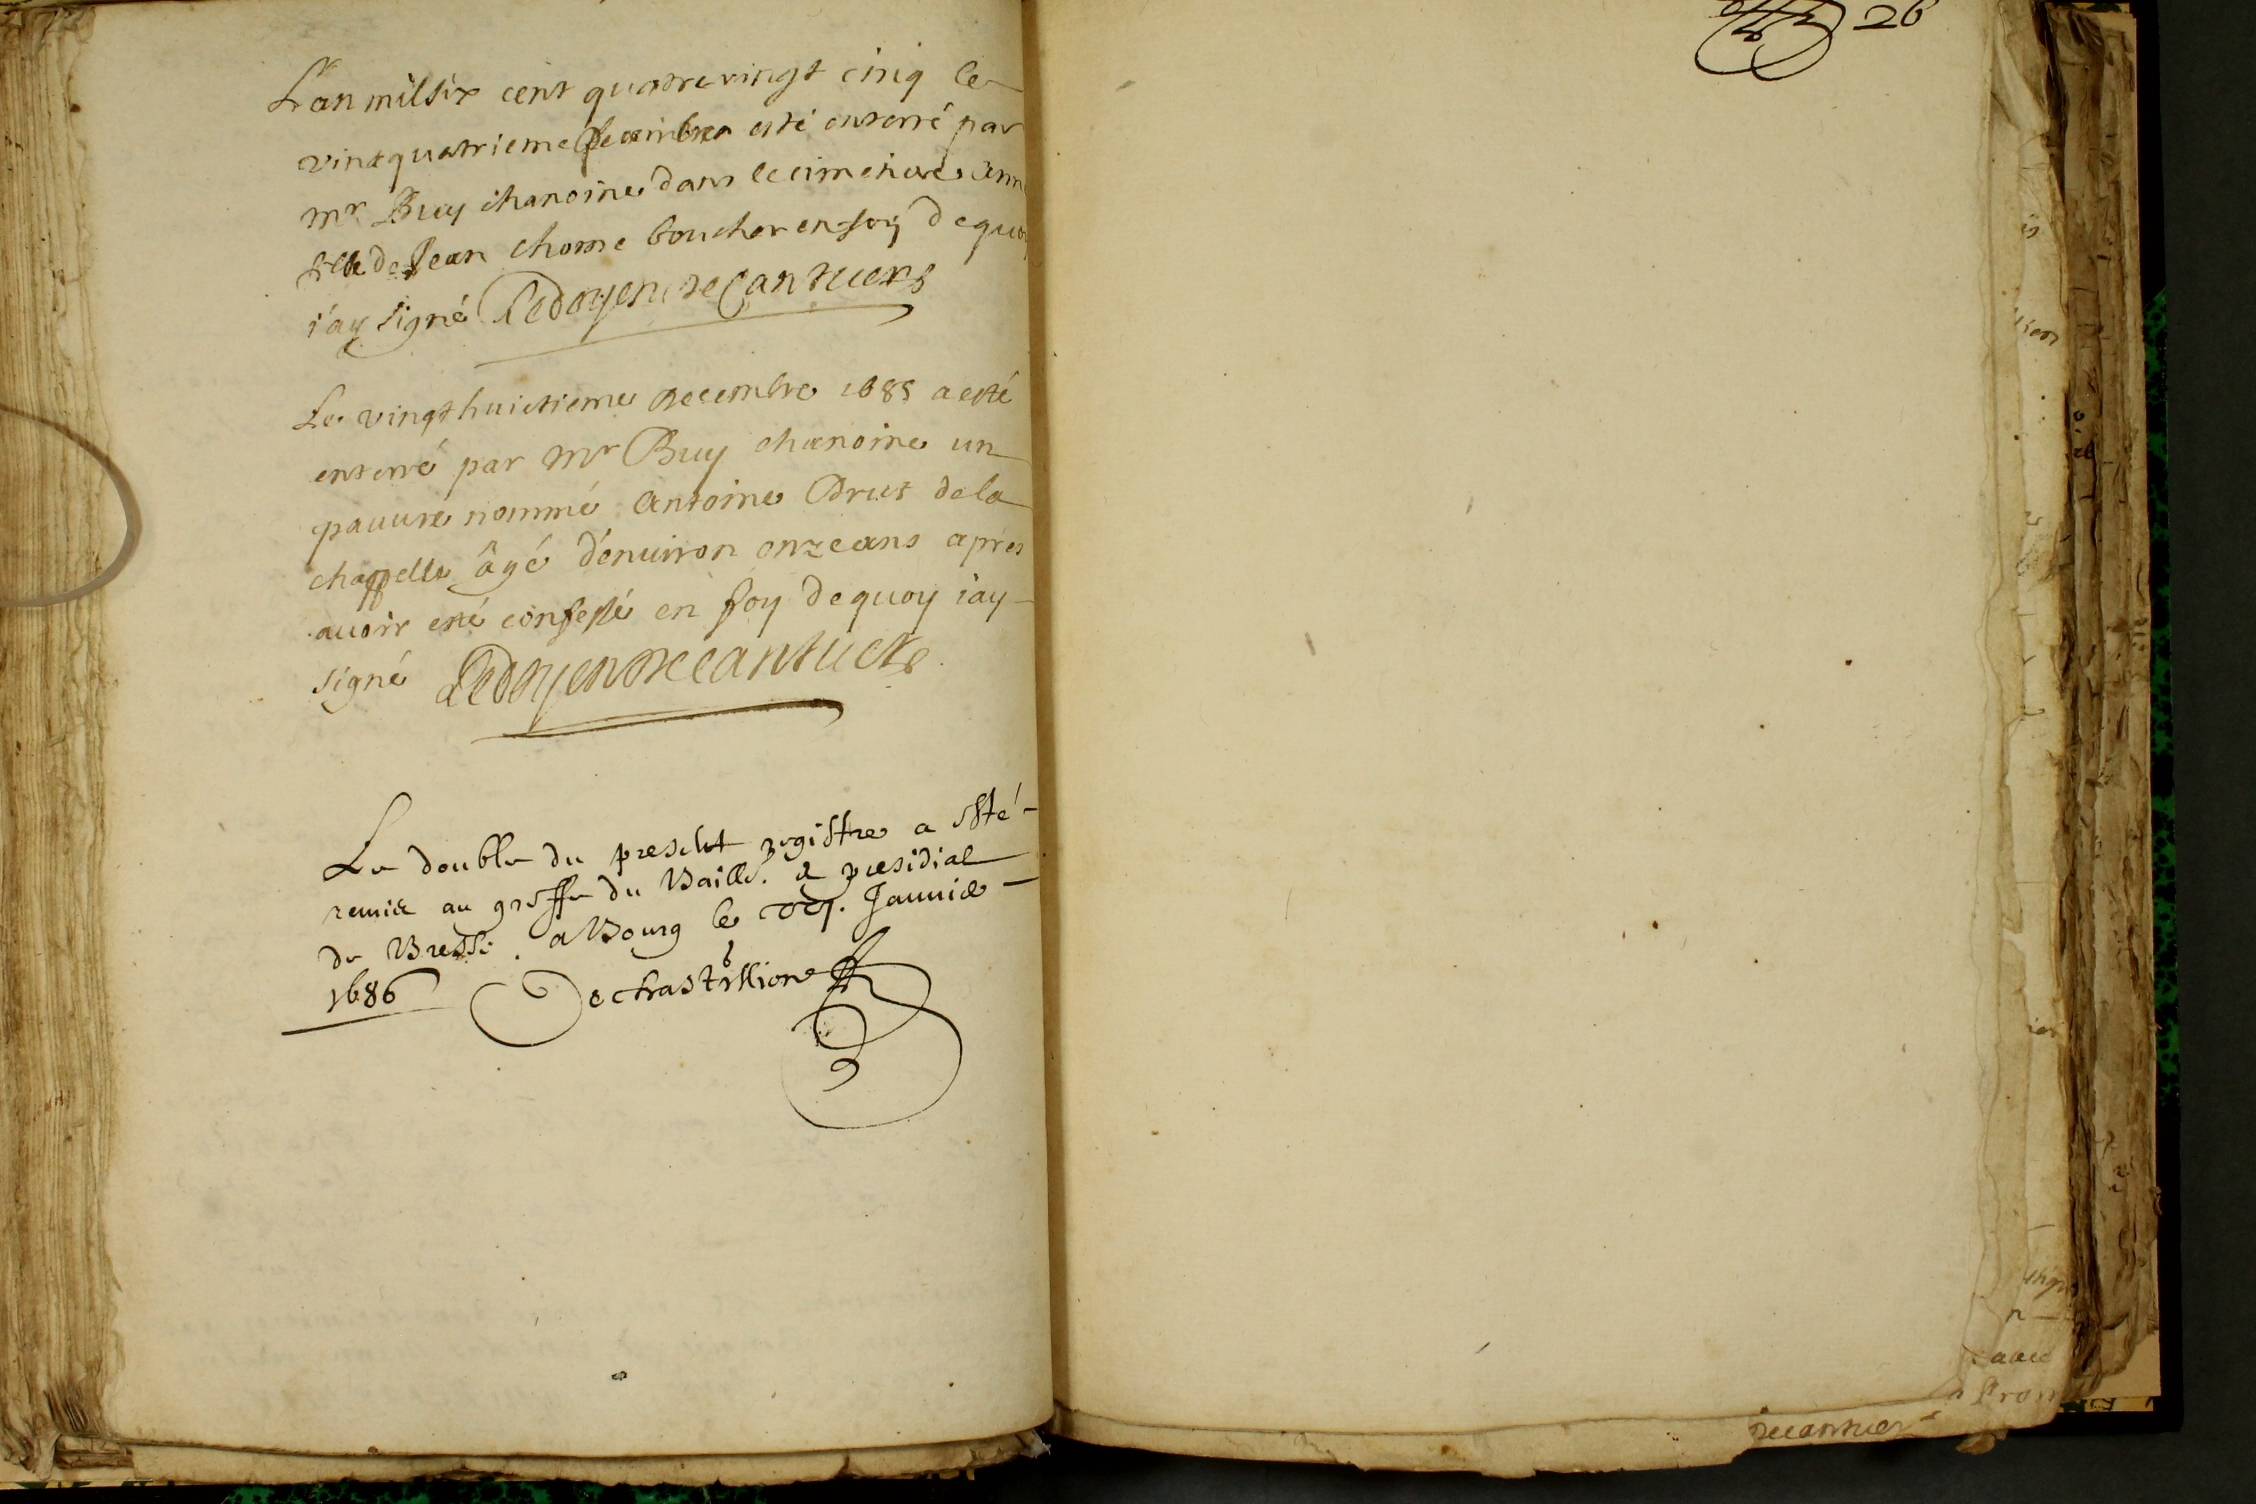 L'an mil six cent quatre vingt cinq le
vint quatrieme decembre a esté enterré par
Mr Buy chanoine dans le cimetiere
fille de Jean chome boucher en foy de quoy
i'ay signé Le doyen
Le vingt huictieme decembre 1685 a esté
enterré par Mr Buy chanoine un
pauure nommé Antoine Brut de la
chappelle âgé d'enuiron onze ans apres
auoir esté confessé en foy de quoy i'ay
signé Le doyen
Le double du present registre a esté
remis au greffe du Baill. & presidial
de Bresse. a Bourg le Januier
1686
26